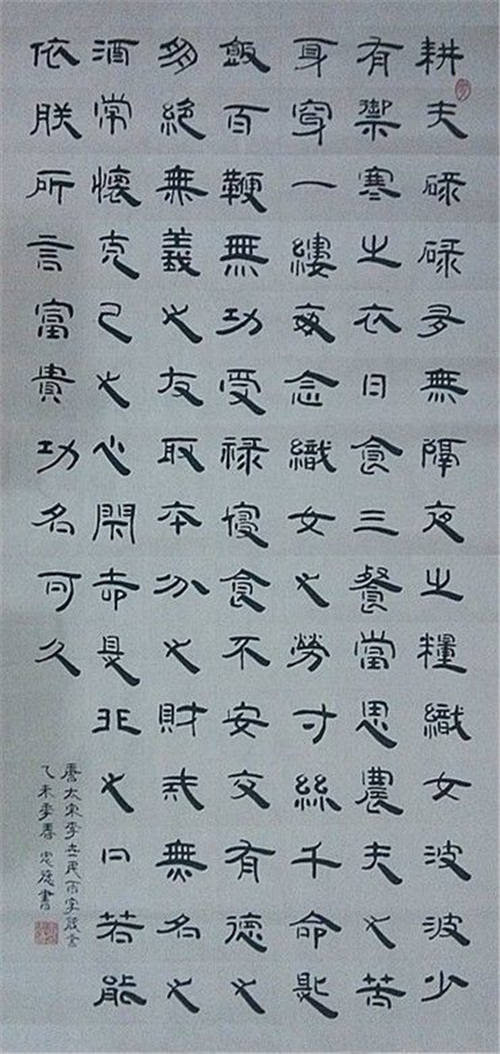 耕夫碌碌多無隔夜之糧織女波波少
有禦寒之衣日食三餐當思農夫之苦
身穿一縷每念織女之勞寸絲千命匙
飯百鞭無功受祿寢食不安交有德之
朋絕無義之友取本分之財戒無名之
酒常懷克己之心閉却是非之口若能
依朕所言富貴功名可久
唐太宗李世民百字箴言
乙未季春忠書